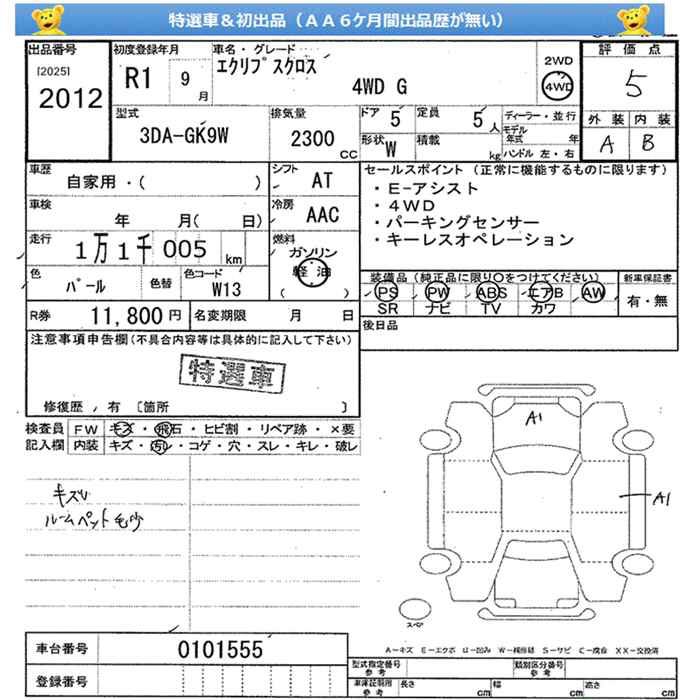 特選車＆初出品（ＡＡ６ケ月間出品歴が無い）
出品番号
[2025]
2012
初度登録年月
R1 9 月
車名・グレード
エクリプスクロス
4WD G
2WD
4WD
評価点
5
外装 内装
A B
型式
3DA-GK9W
排気量
2300 CC
ドア 5
定員 5 人
形状 W
積載 kg
ディーラー・並行
モデル年式 年
ハンドル 左・右
車歴
自家用・( )
シフト AT
車検
年 月( 日)
冷房 AAC
走行
1万1千005 km
燃料
ガソリン
軽油
( )
色 パール
色替
色コード W13
R券 11,800 円
名変期限 月 日
セールスポイント (正常に機能するものに限ります)
・E-アシスト
・4WD
・パーキングセンサー
・キーレスオペレーション
装備品（純正品に限り○をつけてください）
PS PW ABS エアB AW
SR ナビ TV カワ
新車保証書
有・無
後日品
注意事項申告欄(不具合内容等は具体的に記入して下さい)
特選車
修復歴 , 有 [箇所 ]
検査員 FW キズ・飛石・ヒビ割・リペア跡・×要
記入欄 内装 キズ・汚レ・コゲ・穴・スレ・キレ・破レ
キズU
ルームペット毛少
A1
A1
スペア
A－キズ E－エクボ U－凹み W－補修跡 S－サビ C－腐食 XX－交換済
車台番号 0101555
登録番号
型式指定番号 参考
類別区分番号 参考
車庫証明用 参考
長さ cm 幅 cm 高さ cm